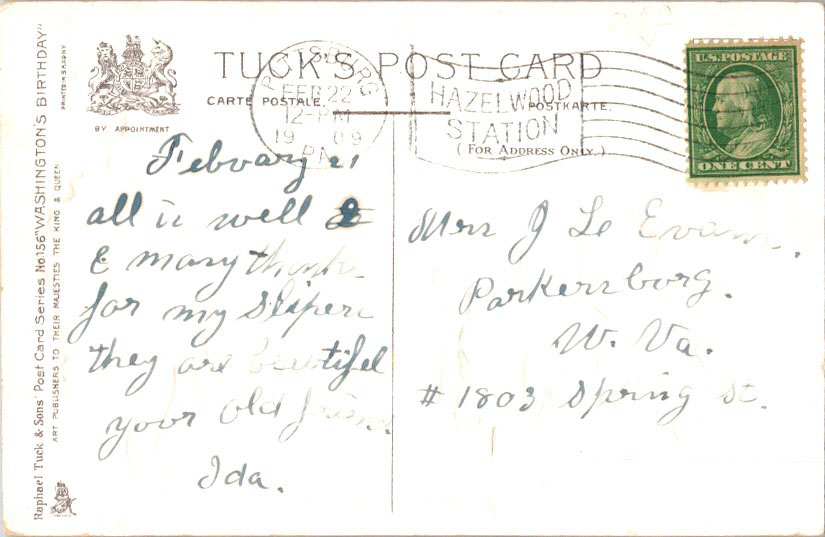 TUCK'S POST CARD
CARTE POSTALE.
POSTKARTE.
(FOR ADDRESS ONLY.)
BY APPOINTMENT
PITTSBURG
FEB 22
12-PM
1909
PA.
HAZELWOOD
STATION
U.S. POSTAGE
ONE CENT
Raphael Tuck & Sons' Post Card Series No. 156 "WASHINGTON'S BIRTHDAY"
PRINTED IN SAXONY
ART PUBLISHERS TO THEIR MAJESTIES THE KING & QUEEN
Febuary 21
all is well
& many thank
for my Slipers
they are beautifel
your old friend.
Ida.
Mrs J Le Evans.
Parkersborg.
W. Va.
# 1803 Spring St.